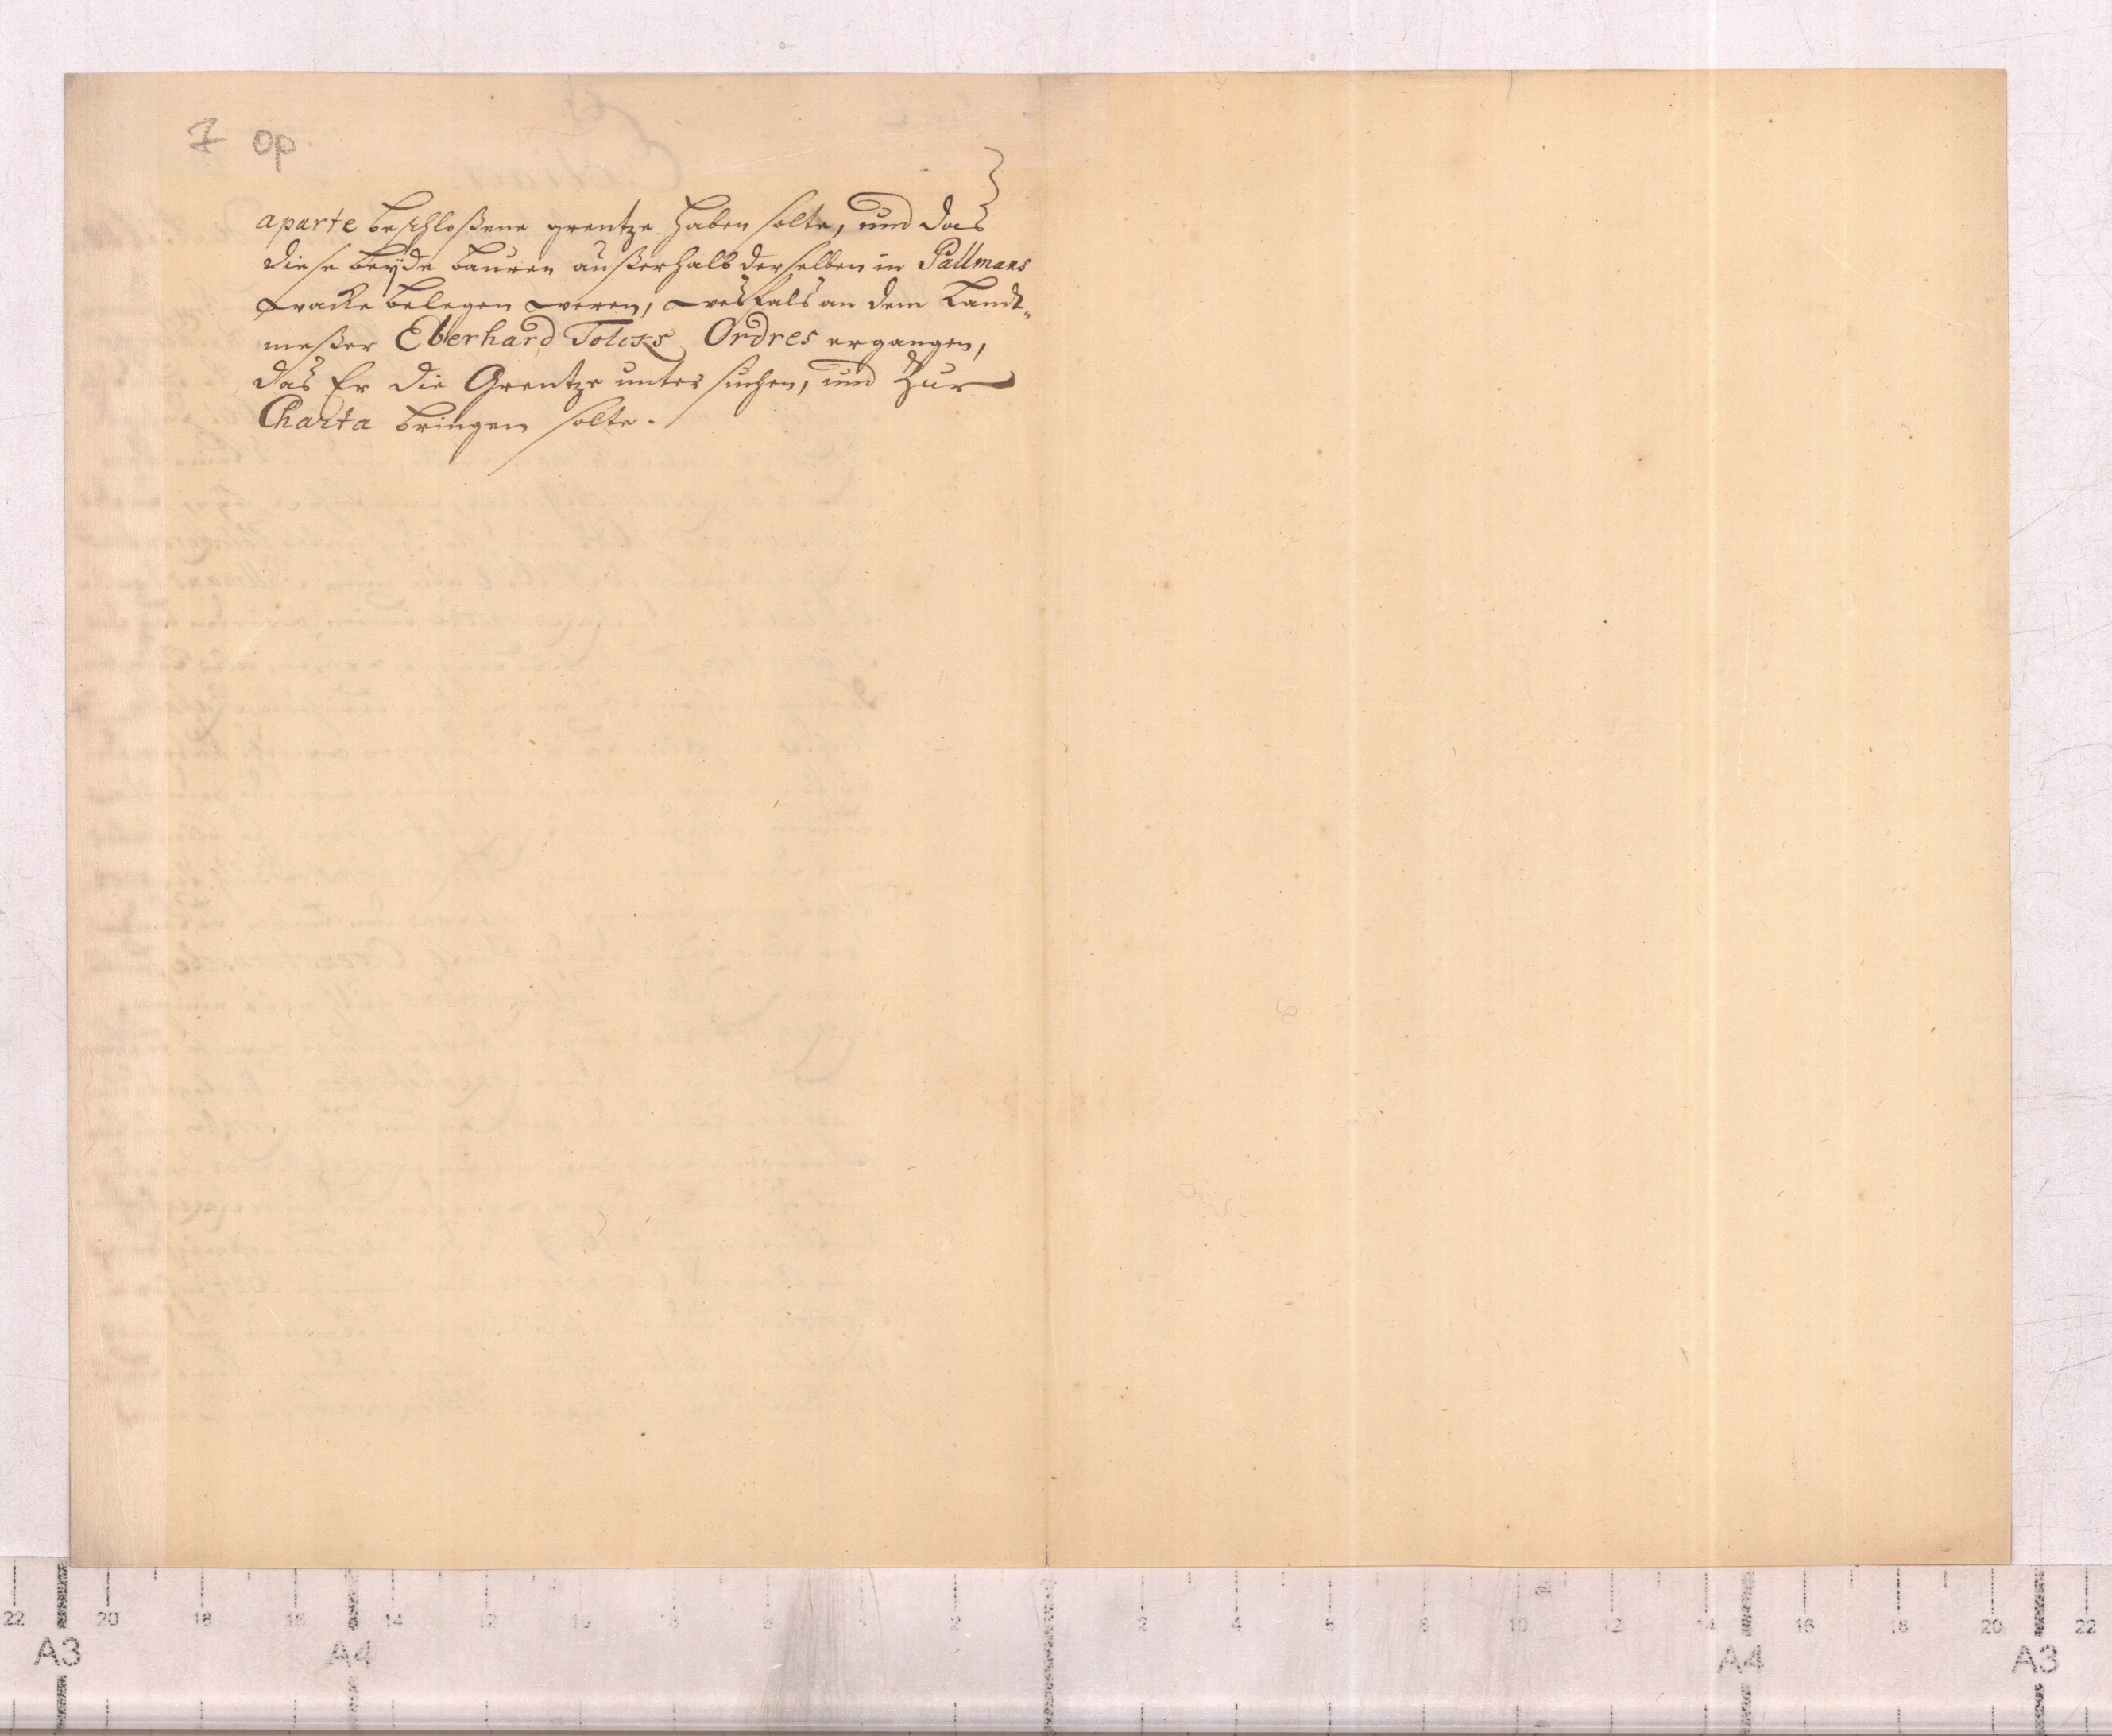 7 op
aparte beschloßene grentze haben solte, und das
diese beyde bauren außerhalb derselben in Pallmans
wacke belegen weren, weshals an dem Landt„
meßer Eberhard Tolcks Ordres ergangen,
das Er die Grentze untersuchen, und Zur
Charta bringen solte.
22 20 18 16 14 12 10 8 6 4 2 2 4 6 8 10 12 14 16 18 20 22
A3 A4 A4 A3